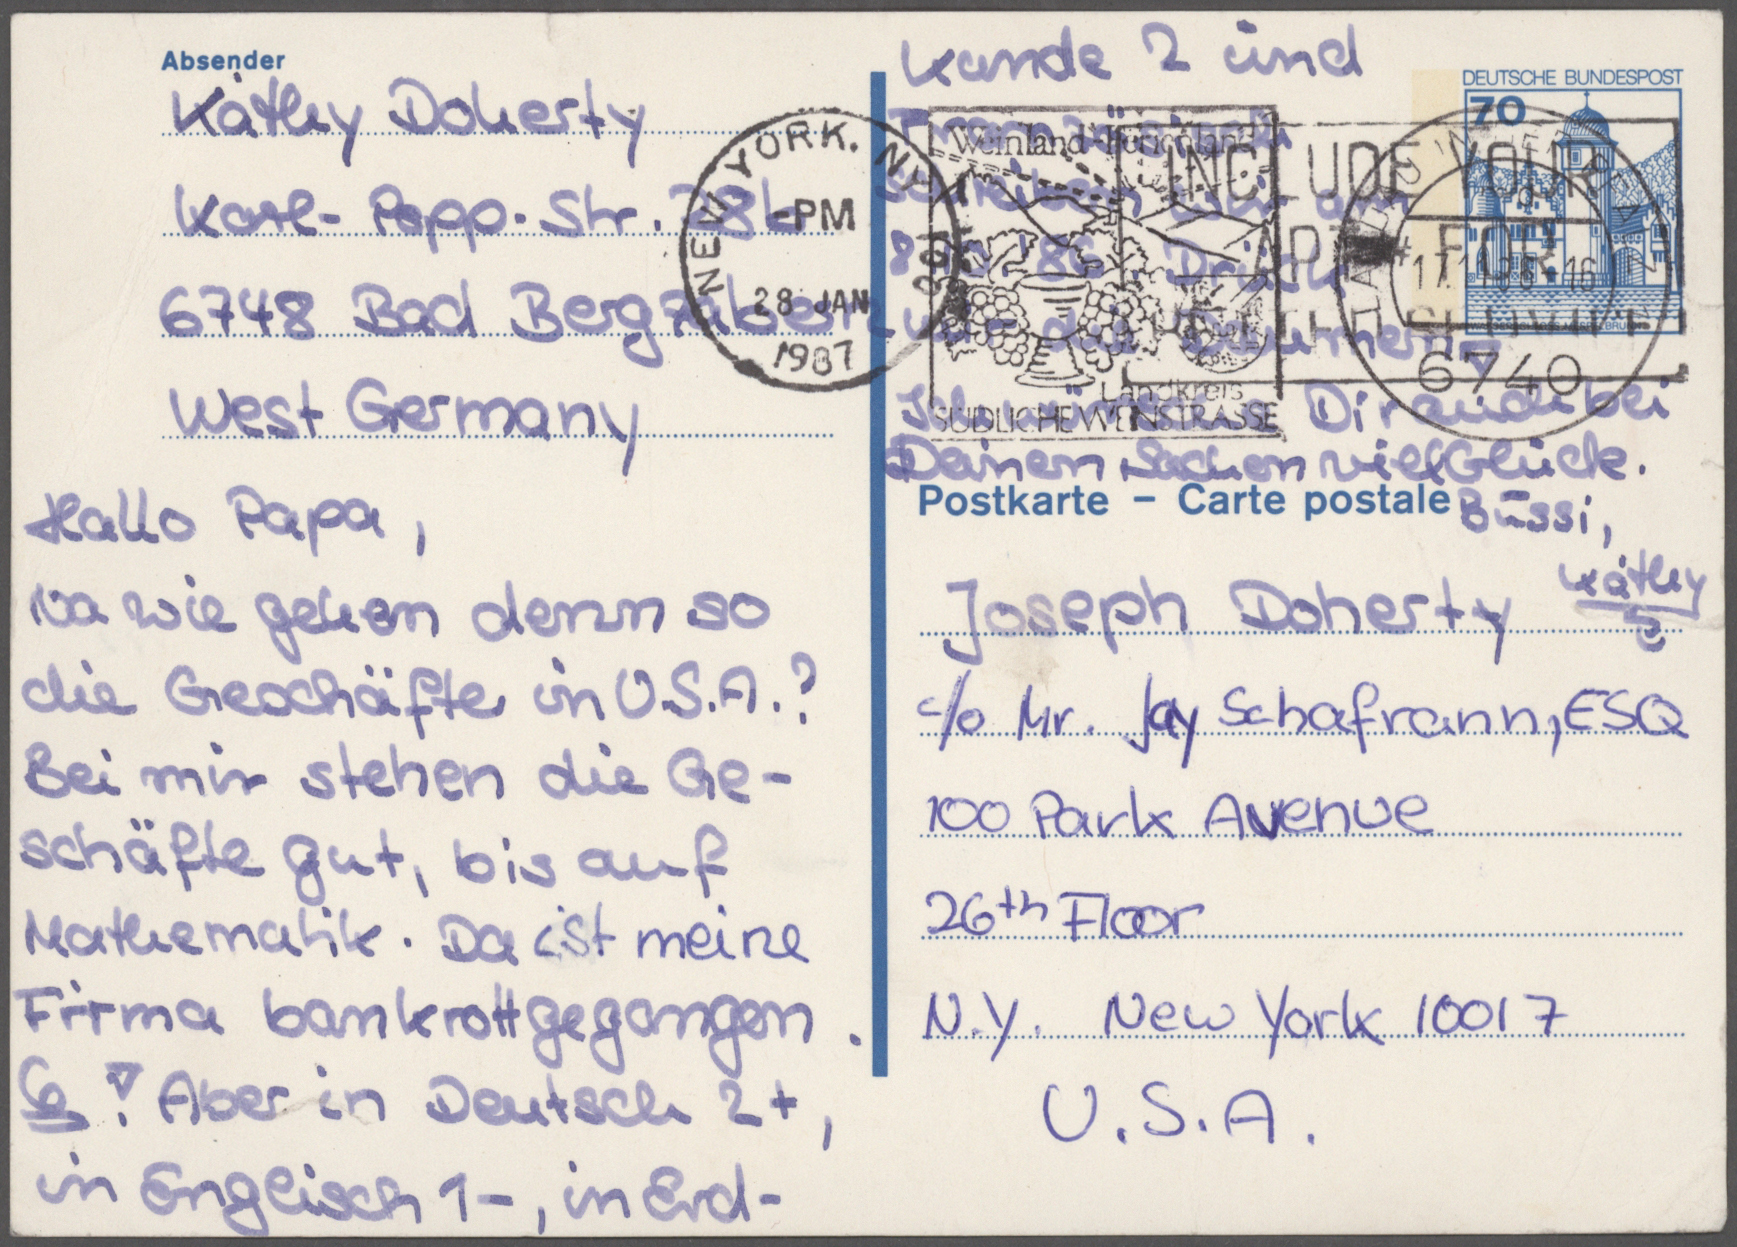 Absender
Käthy Doherty
Karl-Popp-Str. 28b
6748 Bad Bergzabern
West Germany
Hallo Papa,
na wie gehen denn so
die Geschäfte in U.S.A.?
Bei mir stehen die Ge-
schäfte gut, bis auf
Mathematik. Da ist meine
Firma bankrottgegangen.
6! Aber in Deutsch 2+,
in Englisch 1-, in Erd-
kunde 2 und
schreiben wir am
Drück
Daumen!
Ich Dir auch bei
Deinen Sachen viel Glück.
Bussi,
Käthy
NEW YORK, NY
-PM
28 JAN
1987
Weinland-Ferienland
Landkreis
SÜDLICHE WEINSTRASSE
INCLUDE YOUR
APT # FOR
6740
DEUTSCHE BUNDESPOST
70
Postkarte – Carte postale
Joseph Doherty
c/o Mr. Jay Schafrann, ESQ
100 Park Avenue
26th Floor
N.Y. New York 10017
U.S.A.